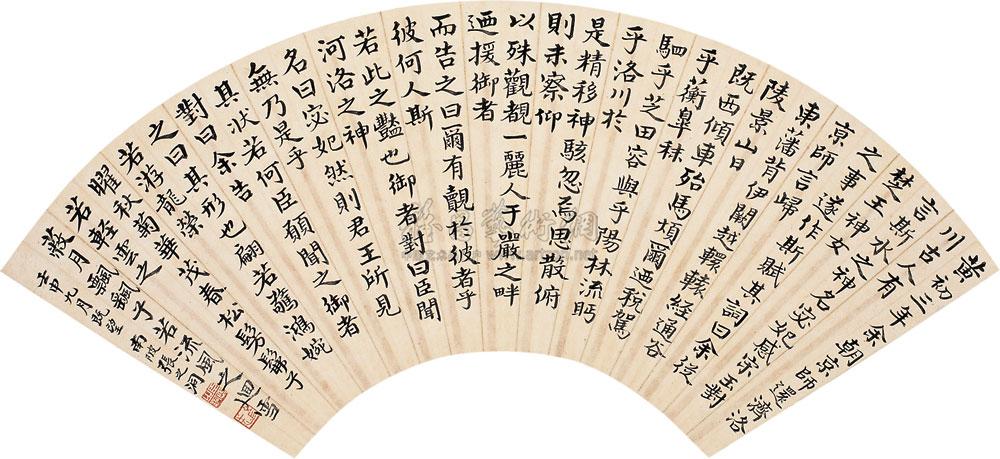 黃初三年余朝京師還濟洛
川古人有
言斯水之神名宓妃感宋玉對
楚王神女
之事遂作斯賦其詞曰余從
京師言歸
東藩背伊闕越轘轅經通谷
陵景山日
既西傾車殆馬煩爾迺稅駕
乎蘅皋秣
駟乎芝田容與乎陽林流眄
乎洛川於
是精移神駭忽焉思散俯
則未察仰
以殊觀覩一麗人于巖之畔
迺援御者
而告之曰爾有覿於彼者乎
彼何人斯
若此之豔也御者對曰臣聞
河洛之神
名曰宓妃然則君王所見
無乃是乎
其狀若何臣願聞之御者
對曰余告
之曰其形也翩若驚鴻婉
若游龍榮
曜秋菊華茂春松髣髴兮
若輕雲之
蔽月飄飄兮若流風之迴雪
壬申九月既望
南皮張之洞